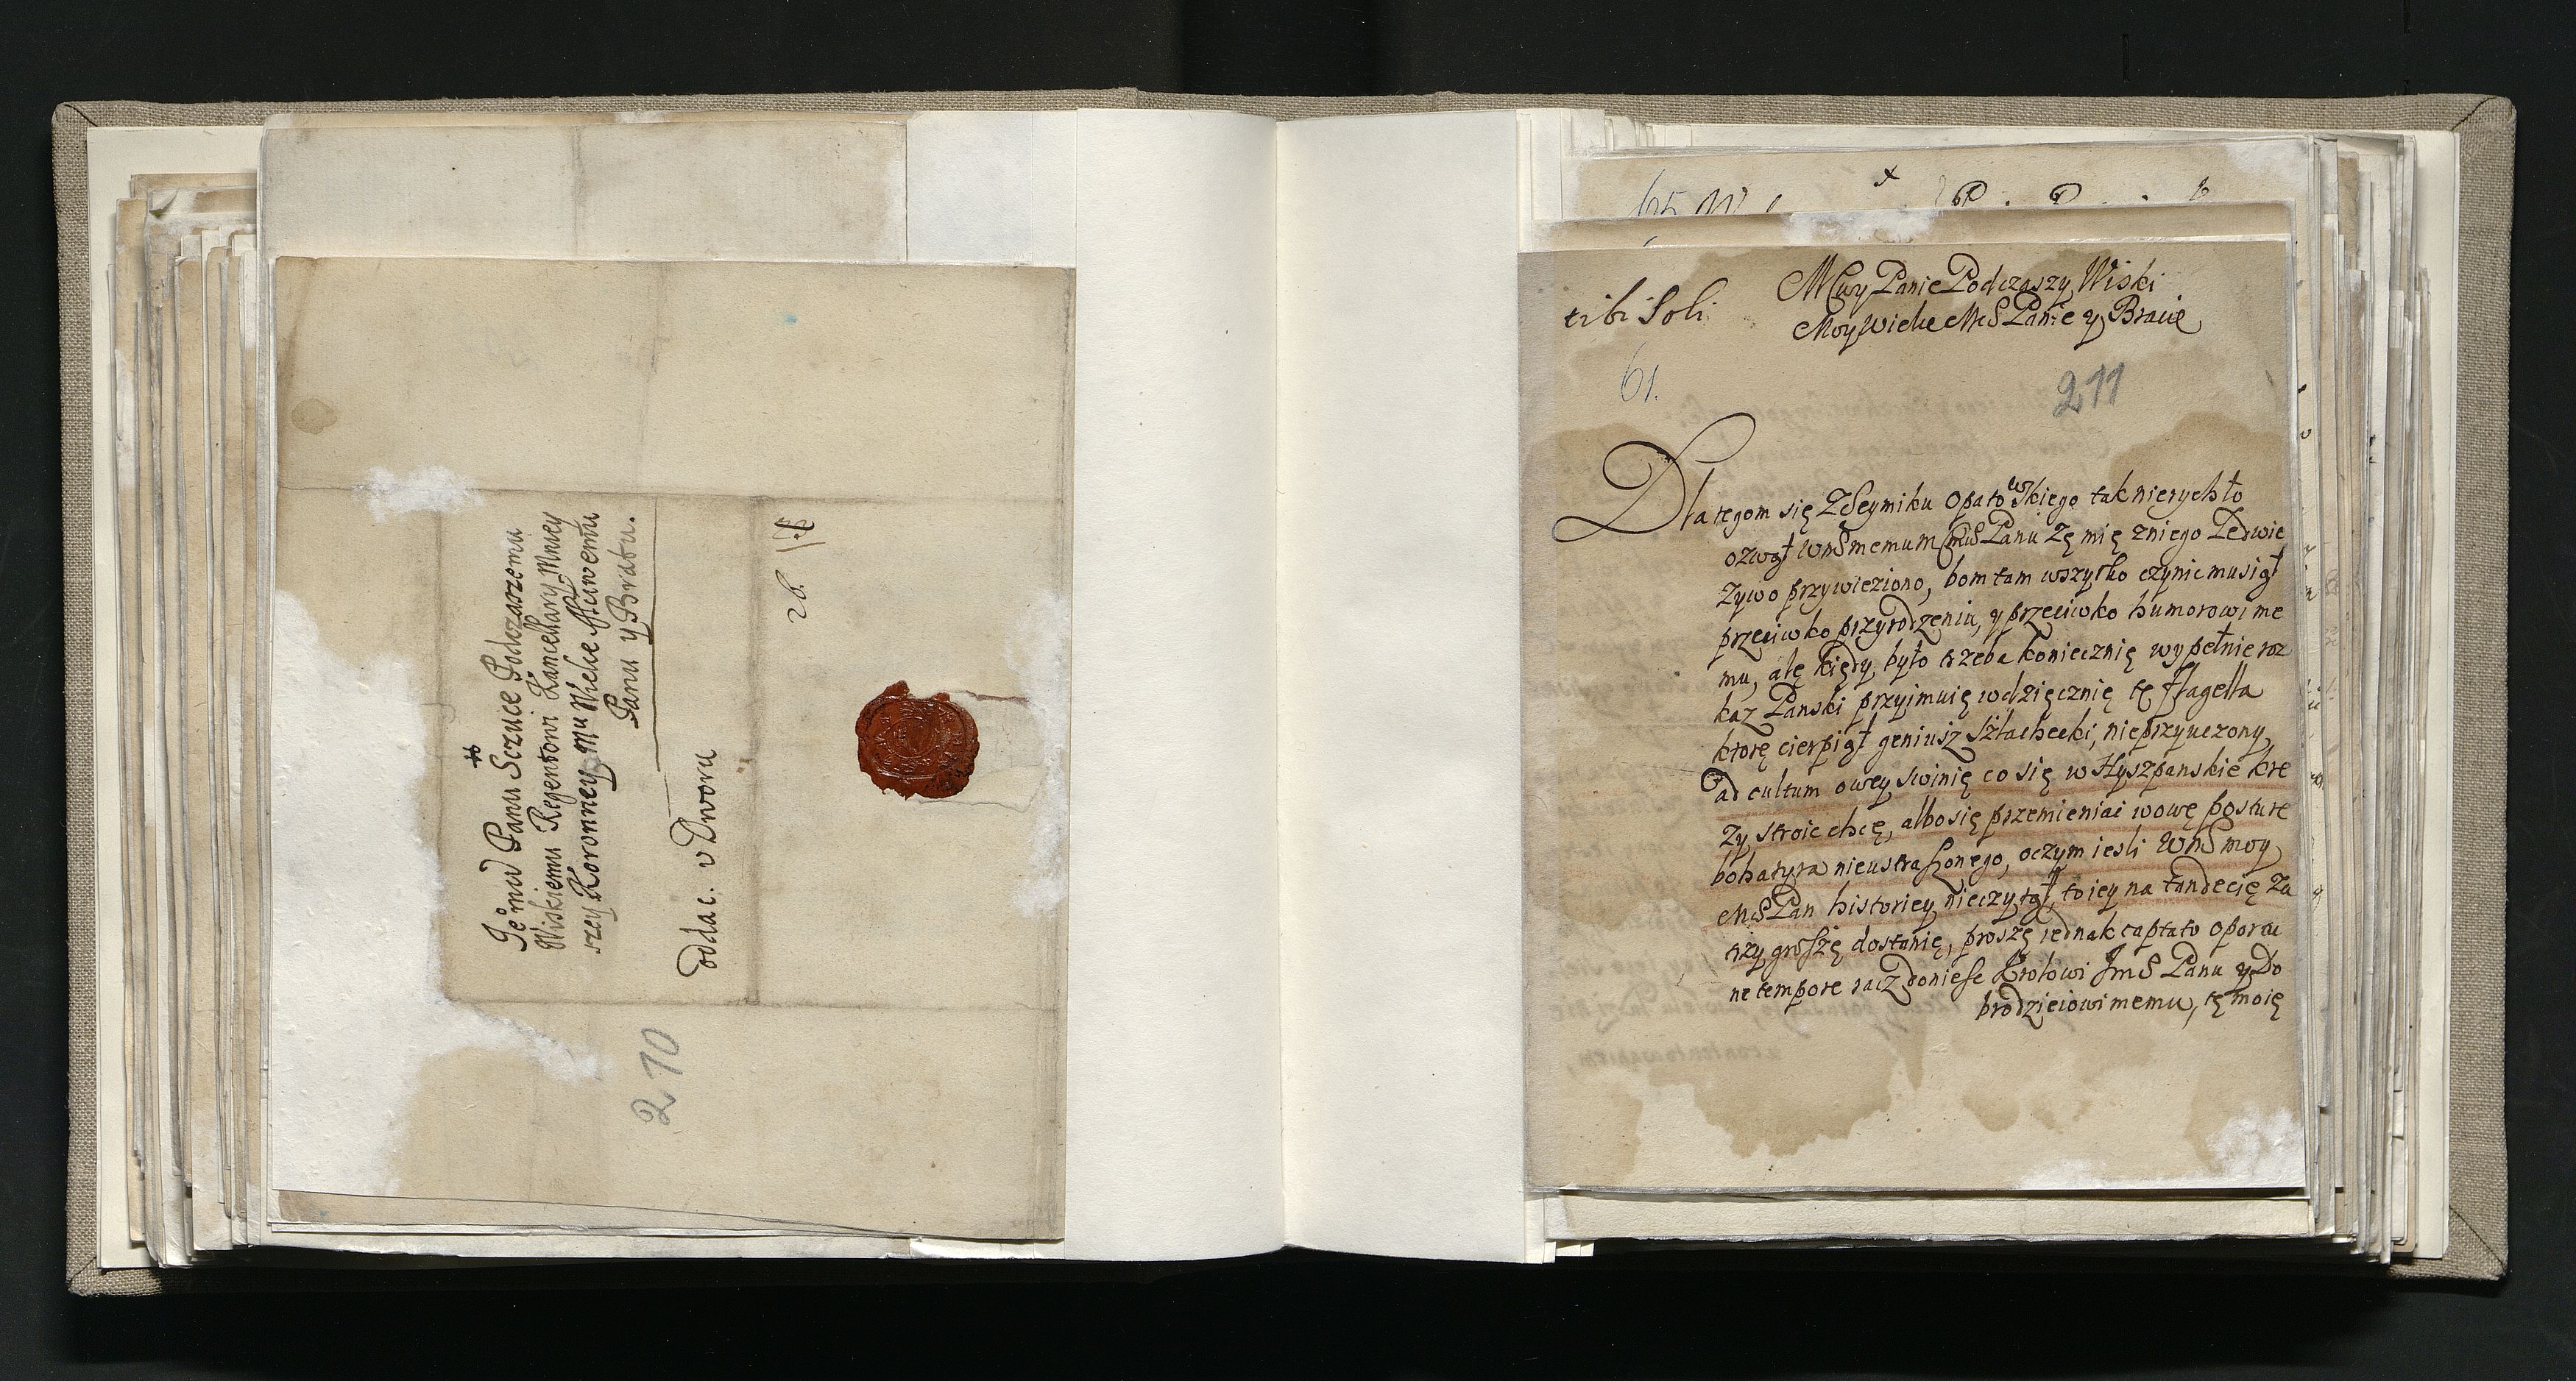 ✝
Jeomć Panu Sczuce Podczaszemu
Wiskiemu Regentowi Kancellaryey Mniey
szey Koronney Mu Wielce Mciwemu
Panu y Bratu.
oddac. v Dworu
26
210
tibi Soli
Mćwy Panie Podczaszy Wiski
Moy Wielce MćS Panie y Bracie
61.
211
Dlategom się z Seymiku Opatowskiego tak nierychło
ozwał WmS memu MćiuS Panu Zę mię zniego Ledwie
Zywo przywieziono, bom tam wszytko czynic musiał
przeciwko przyrodzeniu, y przeciwko humorowi me
mu, alę kiędy było trzeba koniecznię wypełnic roz
kaz Panski przyimuię wdzięcznię tę flagella
ktorę cierpiał geniusz Szlachecki, nieprzyuczony
ad cultum owey swinię co się w Hyszpanskie kre
zy stroic chcę, albo się przemieniac wowę posturę
bohatyra nieustraszonego, oczym iesli WmS moy
MćS Pan historiey nieczytał, to iey na tandecię za
trzy groszę dostanię, proszę iednak captato oportu
ne tempore racz donieśc Krolowi JmS Panu y Do
brodzieiowi memu, tę moię